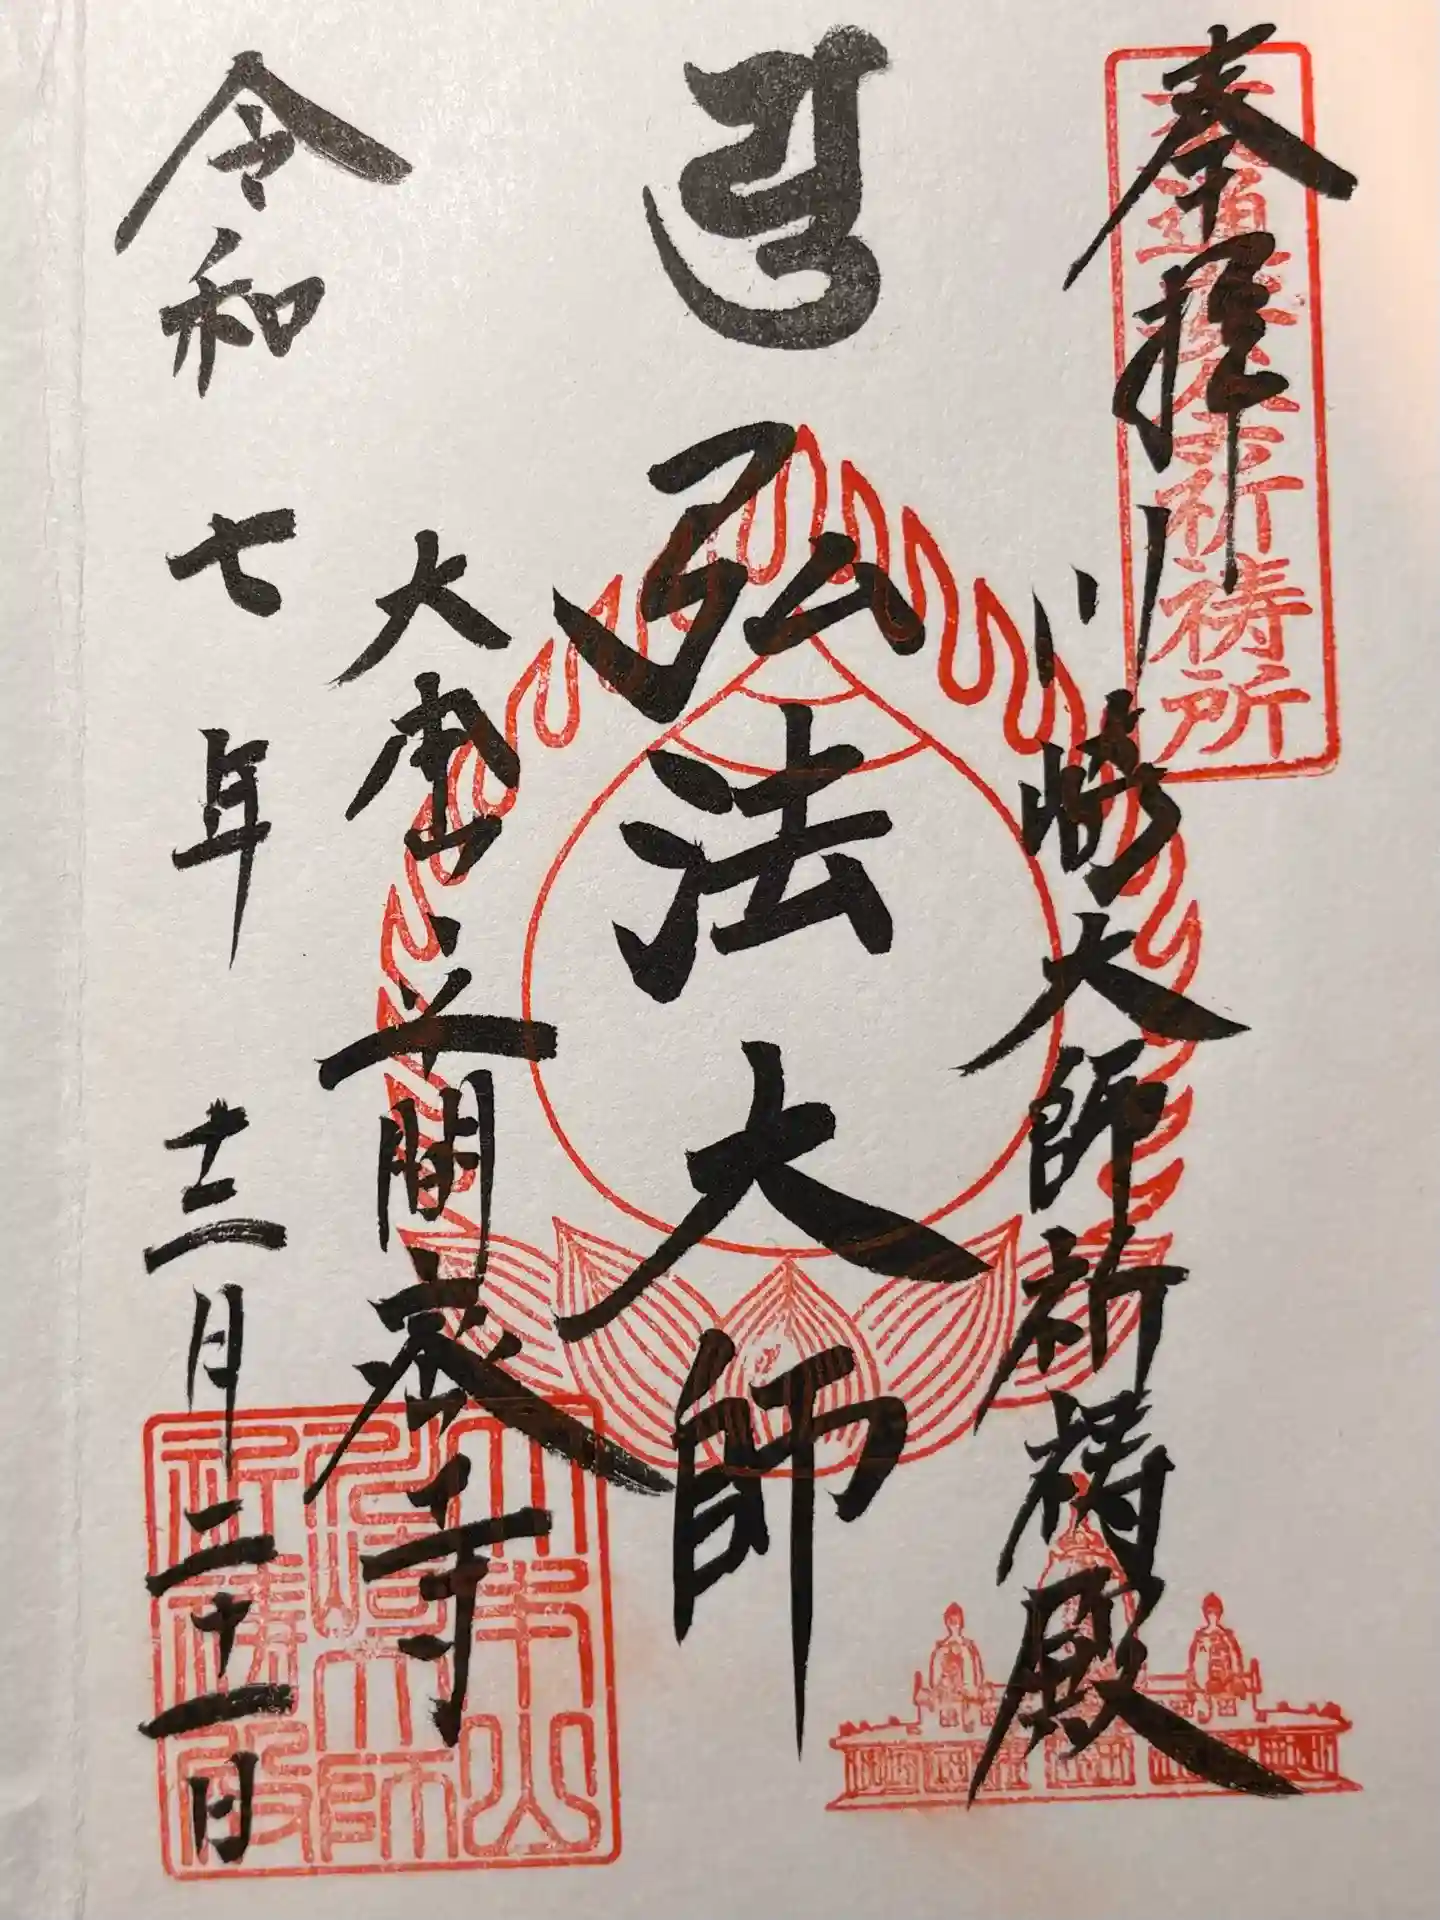 奉拝
交通安全祈祷所
川崎大師祈祷殿
弘法大師
大本山平間寺
令和七年十二月二十一日
大本山
川崎大師
祈祷殿